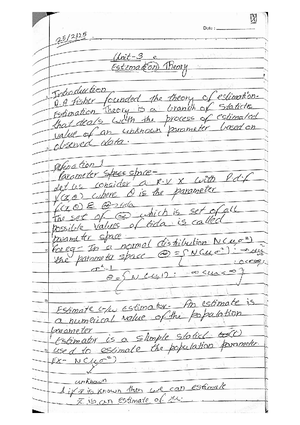 Date:
25/2/25
Unit-3
Estimation Theory
Introduction
R.A fisher founded the theory of estimation.
Estimation Theory is a branch of Statistic
that deals with the process of estimated
value of an unknown parameter based on
observed data.
Defination 1
Parameter space-
let us consider a r.v X with P.d.f
f(x,θ) where θ is the parameter
The set of Θ which is set of all
possible values of is called
parameter space
For eg- In a normal distribution N(μ,σ²)
the parameter space
Estimate An estimate is
a numerical value of the population
parameter
Estimator is a Sample Statist
used to estimate the population parameter
unknown
if is known then we can estimate
can estimate of